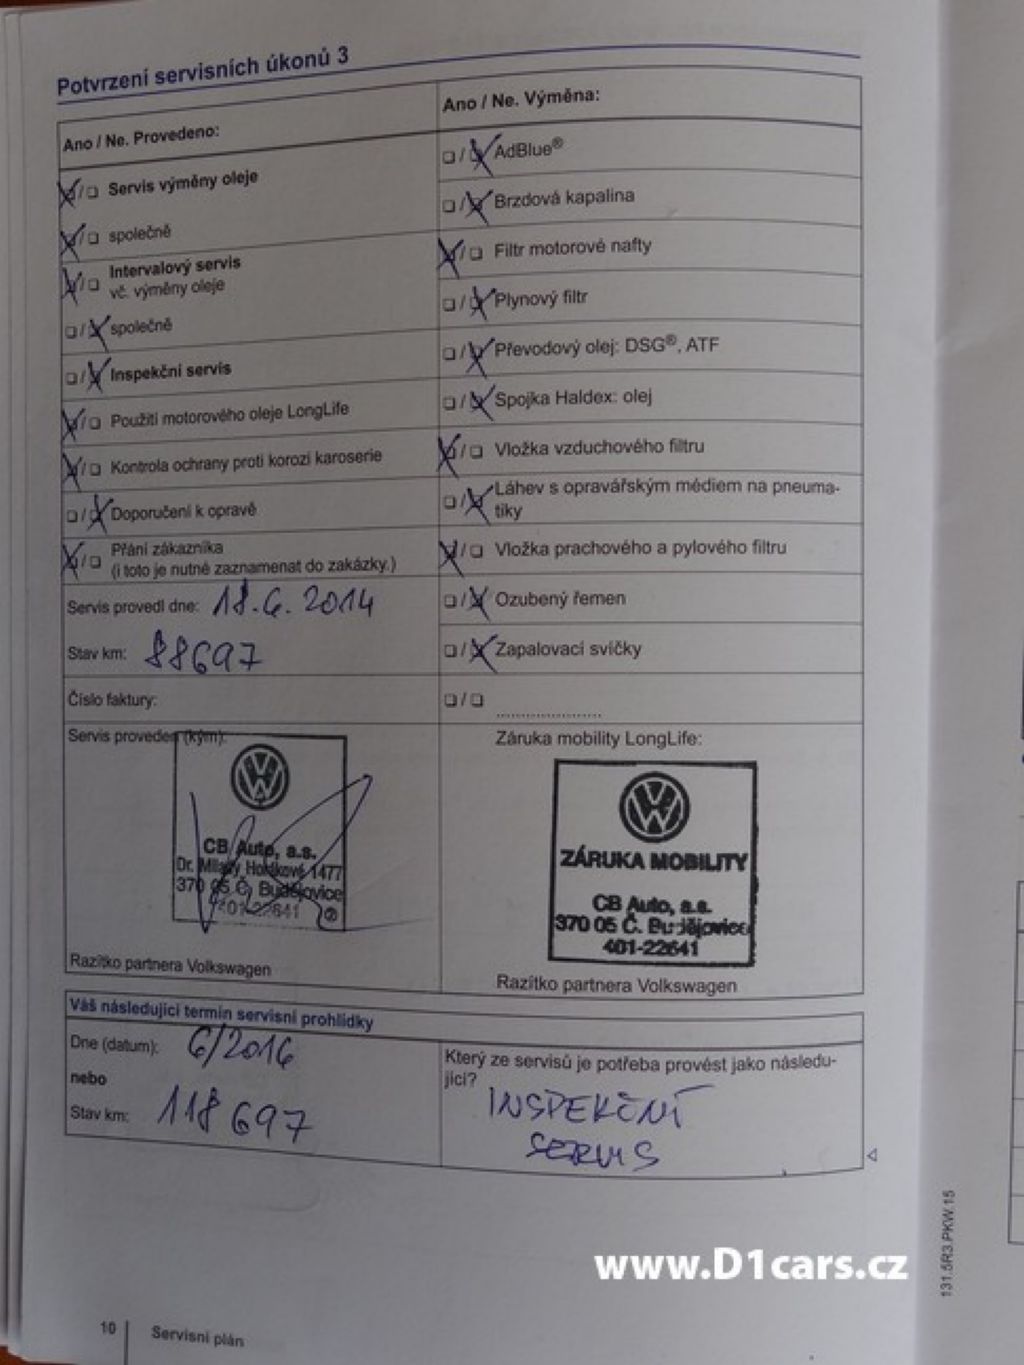 Potvrzení servisních úkonů 3
Ano / Ne. Provedeno:
Servis výměny oleje
společně
Intervalový servis
vč. výměny oleje
společně
Inspekční servis
Použití motorového oleje LongLife
Kontrola ochrany proti korozi karoserie
Doporučení k opravě
Přání zákazníka
(i toto je nutné zaznamenat do zakázky.)
Servis provedl dne: 18.6.2014
Stav km: 88697
Číslo faktury:
Servis proveden (kým):
CB Auto, a.s.
Dr. Milady Horákové 1477
370 05 Č. Budějovice
401-22641
Razítko partnera Volkswagen
Ano / Ne. Výměna:
AdBlue®
Brzdová kapalina
Filtr motorové nafty
Plynový filtr
Převodový olej: DSG®, ATF
Spojka Haldex: olej
Vložka vzduchového filtru
Láhev s opravářským médiem na pneuma-
tiky
Vložka prachového a pylového filtru
Ozubený řemen
Zapalovací svíčky
Záruka mobility LongLife:
ZÁRUKA MOBILITY
CB Auto, a.s.
370 05 Č. Budějovice
401-22641
Razítko partnera Volkswagen
Váš následující termín servisní prohlídky
Dne (datum): 6/2016
nebo
Stav km: 118697
Který ze servisů je potřeba provést jako následu-
jící?
INSPEKČNÍ
SERVIS
www.D1cars.cz
131.5R3.PKW.15
10 Servisní plán